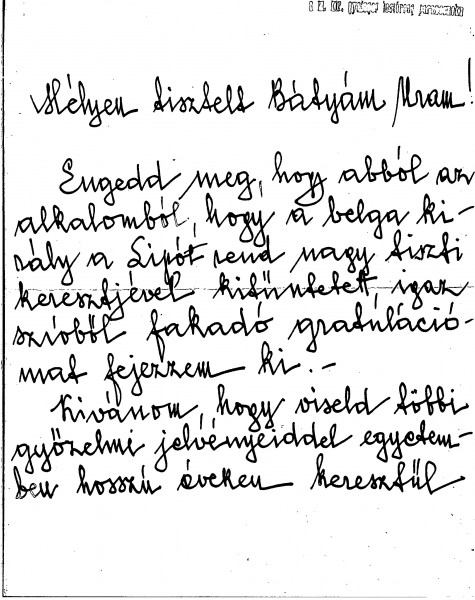 Mélyen tisztelt Bátyám Uram!
Engedd meg, hogy abból az
alkalomból, hogy a belga ki-
rály a Lipót rend nagy tiszti
keresztjével kitüntetett, igaz
szívből fakadó gratuláció-
mat fejezzem ki.-
Kivánom, hogy viseld többi
győzelmi jelvényeiddel egyetem-
ben hosszú éveken keresztül